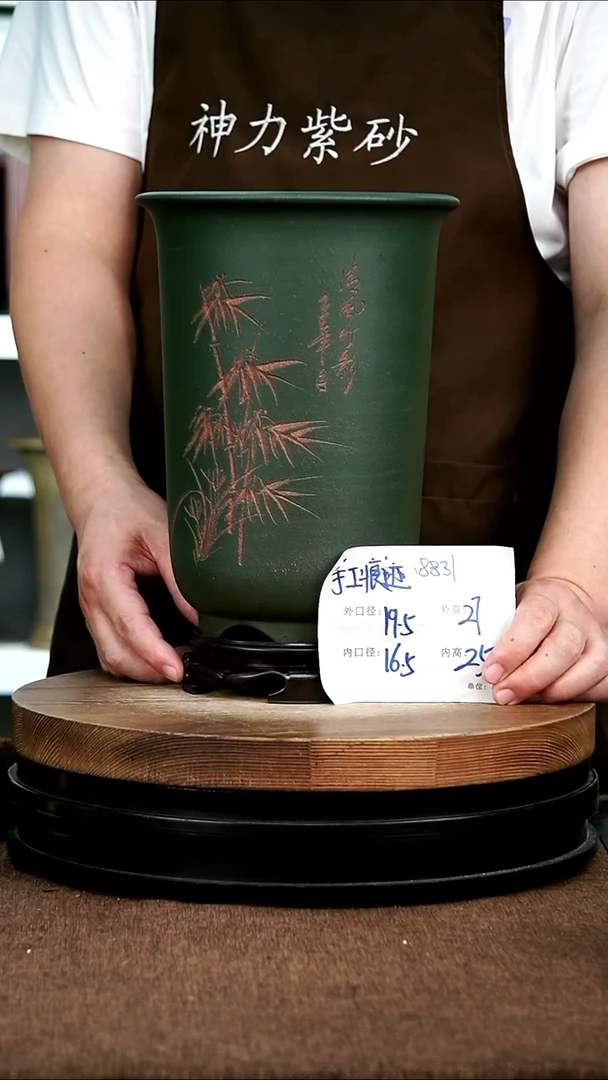 神力紫砂
清风竹影
手工痕迹 8831
外口径: 19.5 外高: 27
内口径: 16.5 内高: 25
单位: